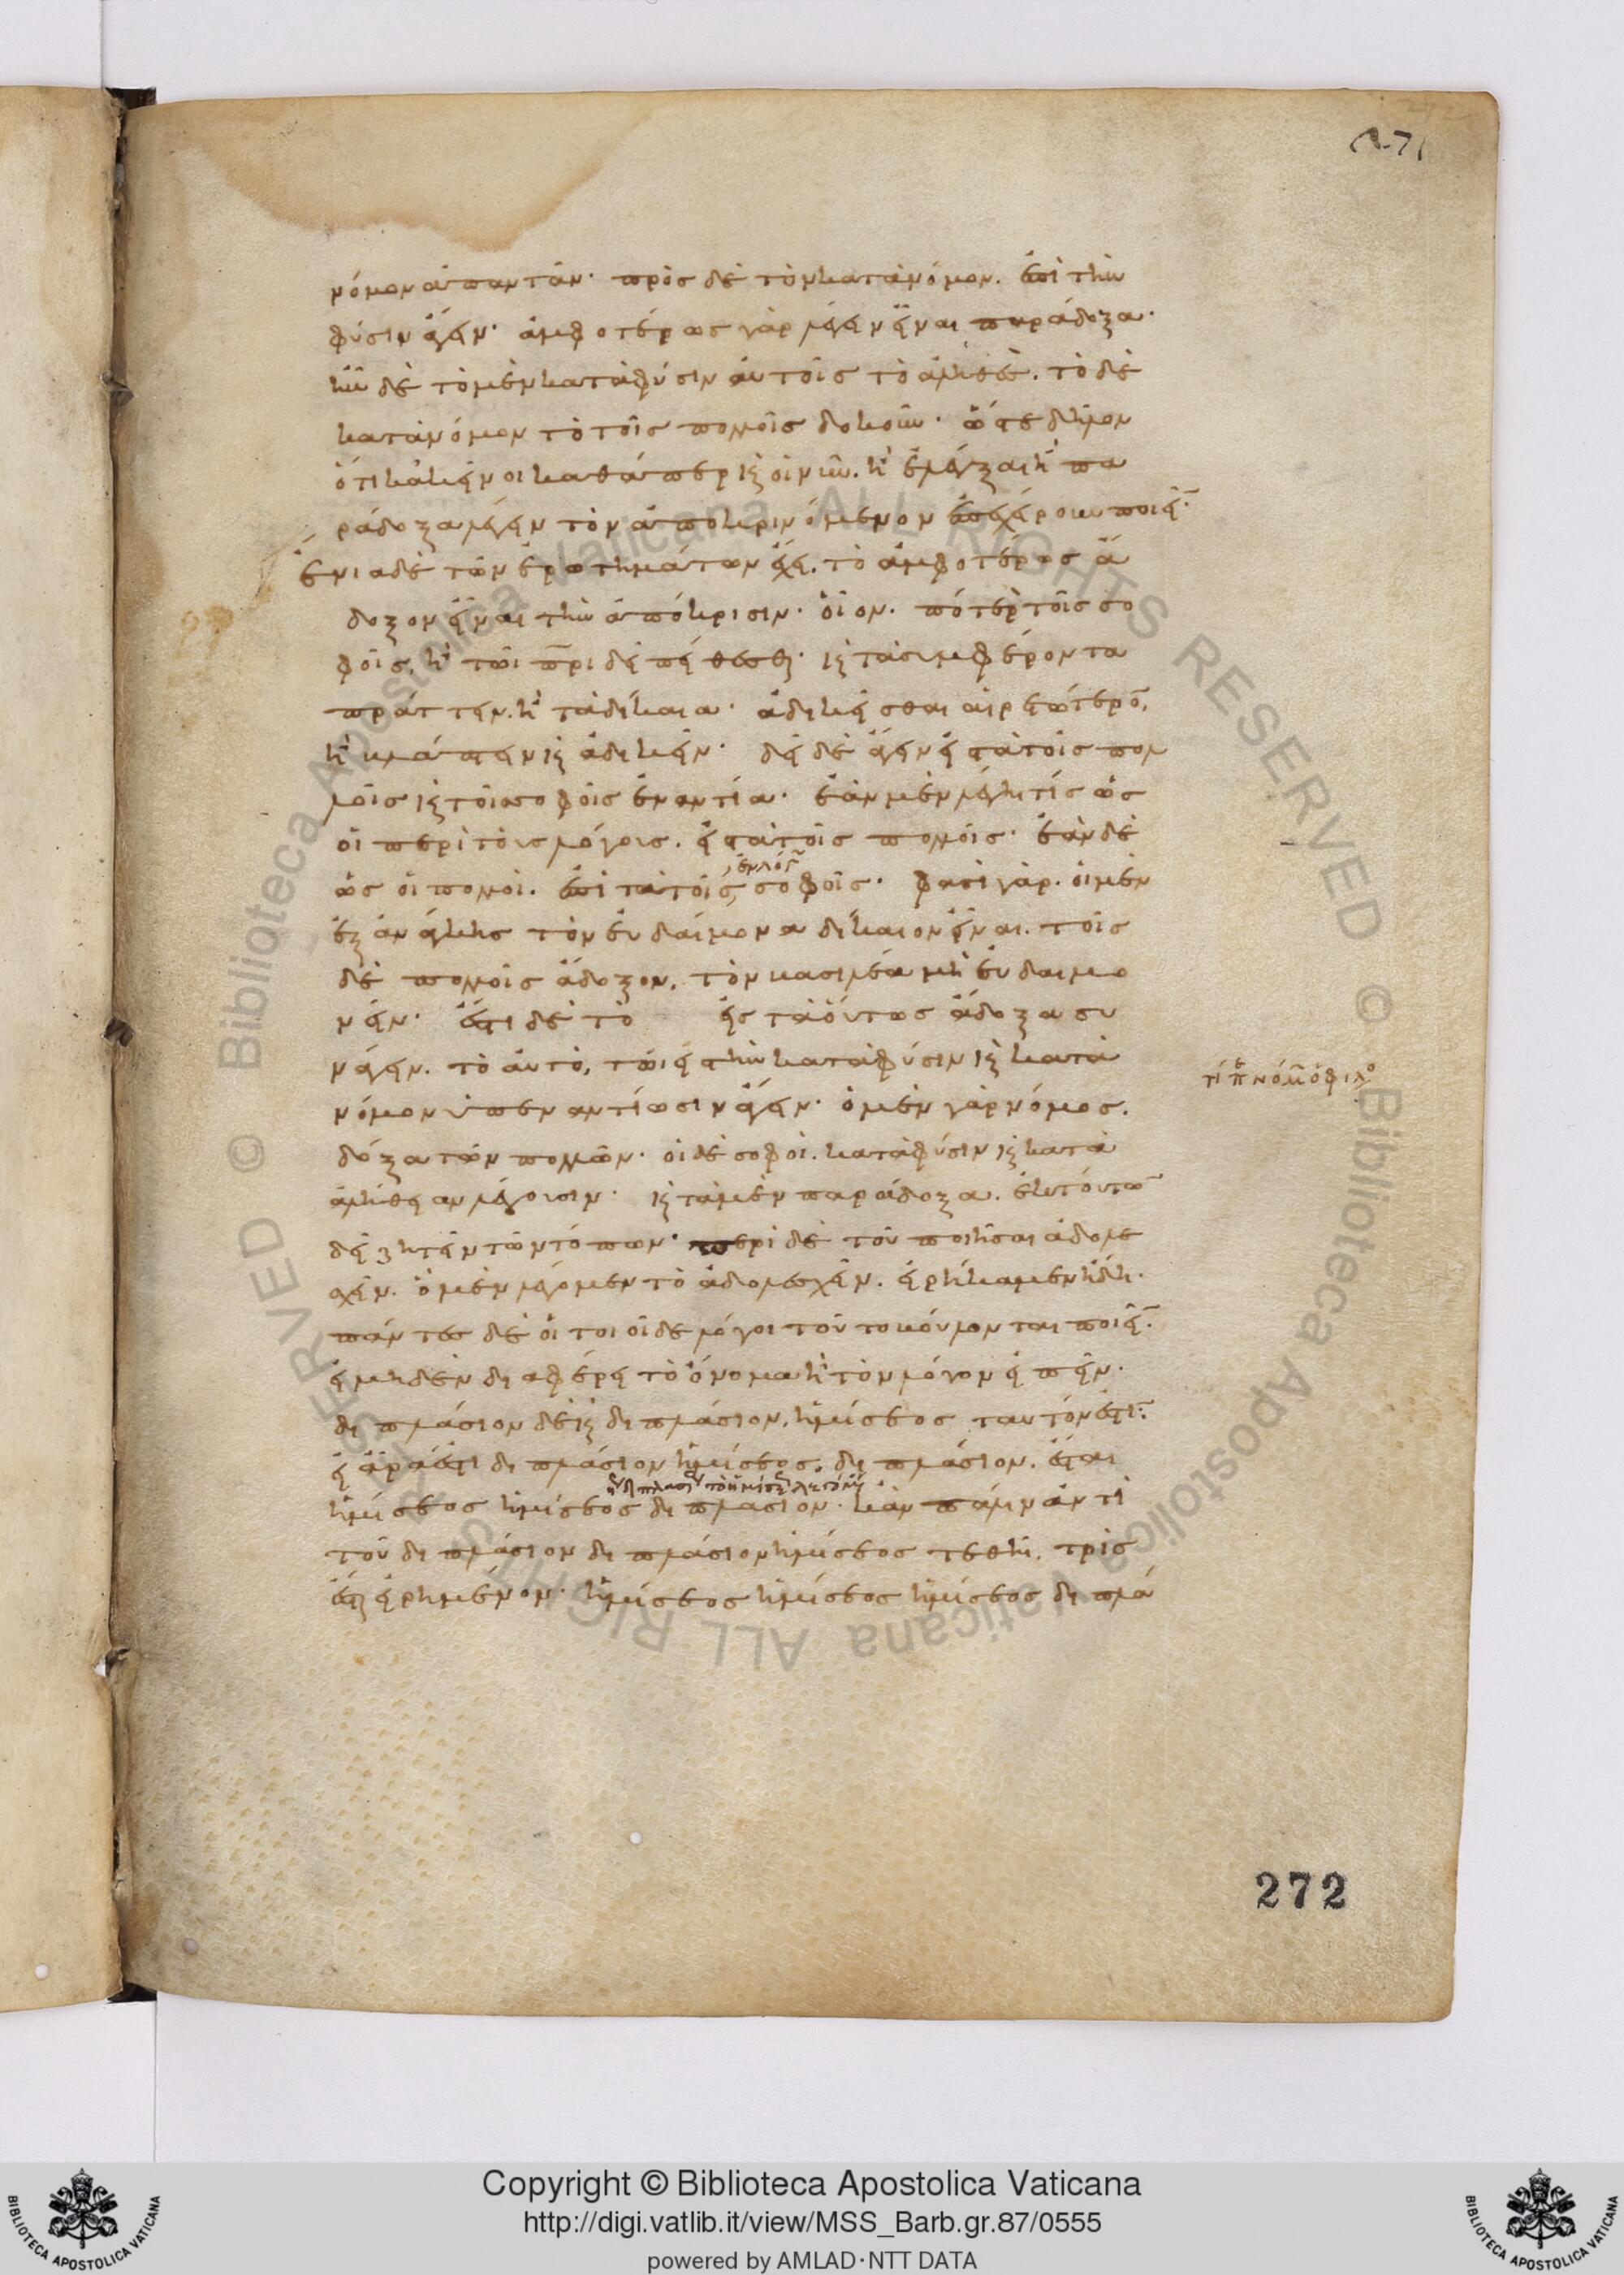 271
νόμον ἀπαντᾶν· πρὸς δὲ τὸν κατὰ νόμον. ἐπὶ τὴν
φύσιν ἄγειν· ἀμφοτέρως γὰρ λέγειν εἶναι παράδοξα·
ἦν δὲ τὸ μὲν κατὰ φύσιν αὐτοῖς τὸ ἀληθές. τὸ δὲ
κατὰ νόμον τὸ τοῖς πολλοῖς δοκοῦν· ὥστε δῆλον
ὅτι κἀκεῖνοι καθάπερ καὶ οἱ νῦν. ἢ ἐλέγξαι ἢ πα
ράδοξα λέγειν τὸν ἀποκρινόμενον ἐπεχείρουν ποιεῖν·
ἔνια δὲ τῶν ἐρωτημάτων ἔχει. τὸ ἀμφοτέρως ἄ
δοξον εἶναι τὴν ἀπόκρισιν· οἷον. πότερον τοῖς σο
φοῖς. ἢ τῶι πρι δεῖ πείθεσθαι· καὶ τὰ συμφέροντα
πράττειν. ἢ τὰ δίκαια· ἀδικεῖσθαι αἱρετώτερον,
ἢ βλάπτειν καὶ ἀδικεῖν· δεῖ δὲ ἄγειν εἰς τὰ τοῖς πολ
λοῖς καὶ τοῖς σοφοῖς ἐναντία· ἐὰν μὲν λέγηι τίς ὡς
οἱ περὶ τοὺς λόγους. εἰς τὰ τοῖς πολλοῖς· ἐὰν δὲ
ὡς οἱ πολλοὶ. ἐπὶ τὰ τοῖς σοφοῖς· φασὶ γὰρ. οἱ μὲν
ἐξ ἀνάγκης τὸν εὐδαίμονα δίκαιον εἶναι. τοῖς
δὲ πολλοῖς ἄδοξον, τὸν βασιλέα μὴ εὐδαιμο
νεῖν· ἔστι δὲ τὸ εἰς τὰ οὕτως ἄδοξα συ
νάγειν. τὸ αὐτὸ, τῶι εἰς τὴν κατὰ φύσιν καὶ κατὰ
νόμον ὑπεναντίωσιν ἄγειν· ὁ μὲν γὰρ νόμος.
δόξα τῶν πολλῶν· οἱ δὲ σοφοὶ. κατὰ φύσιν καὶ κατὰ
ἀλήθειαν λέγουσιν· καὶ τὰ μὲν παράδοξα. ἐκ τούτων
δεῖ ζητεῖν τῶν τόπων· περὶ δὲ τοῦ ποιῆσαι ἀδολε
σχεῖν. ὃ μὲν λέγομεν τὸ ἀδολεσχεῖν. εἰρήκαμεν ἤδη·
πάντες δὲ οἱ τοιοίδε λόγοι τοῦτο βούλονται ποιεῖν·
εἰ μηδὲν διαφέρει τὸ ὄνομα ἢ τὸν λόγον εἰπεῖν·
διπλάσιον δὲ καὶ διπλάσιον, ἡμίσεος ταυτόν ἐστιν·
εἰ ἄρα ἐστι διπλάσιον ἡμίσεος, διπλάσιον. ἔσται
ἡμίσεος ἡμίσεος διπλάσιον· κἂν πάλιν ἀντὶ
τοῦ διπλάσιον διπλάσιον ἡμίσεος τεθῆι, τρὶς
ἔσται εἰρημένον· ἡμίσεος ἡμίσεος ἡμίσεος διπλά
272
© Biblioteca Apostolica Vaticana ALL RIGHTS RESERVED © Biblioteca Apostolica Vaticana ALL RIGHTS RESERVED
Copyright © Biblioteca Apostolica Vaticana
http://digi.vatlib.it/view/MSS_Barb.gr.87/0555
powered by AMLAD·NTT DATA
BIBLIOTECA APOSTOLICA VATICANA
BIBLIOTECA APOSTOLICA VATICANA